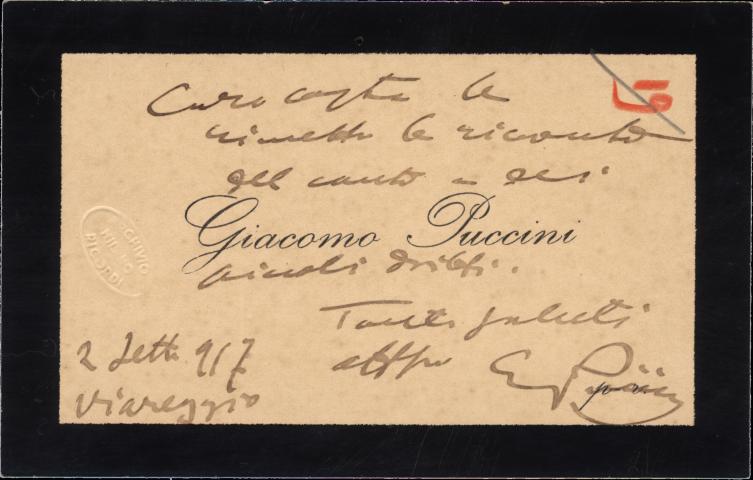 Caro
le
rimetto le ricevute
del conto e dei
Giacomo Puccini
piccoli diritti.
Tanti saluti
aff/mo G. Puccini
2 Sett. 917
Viareggio
ARCHIVIO
MILANO
RICORDI